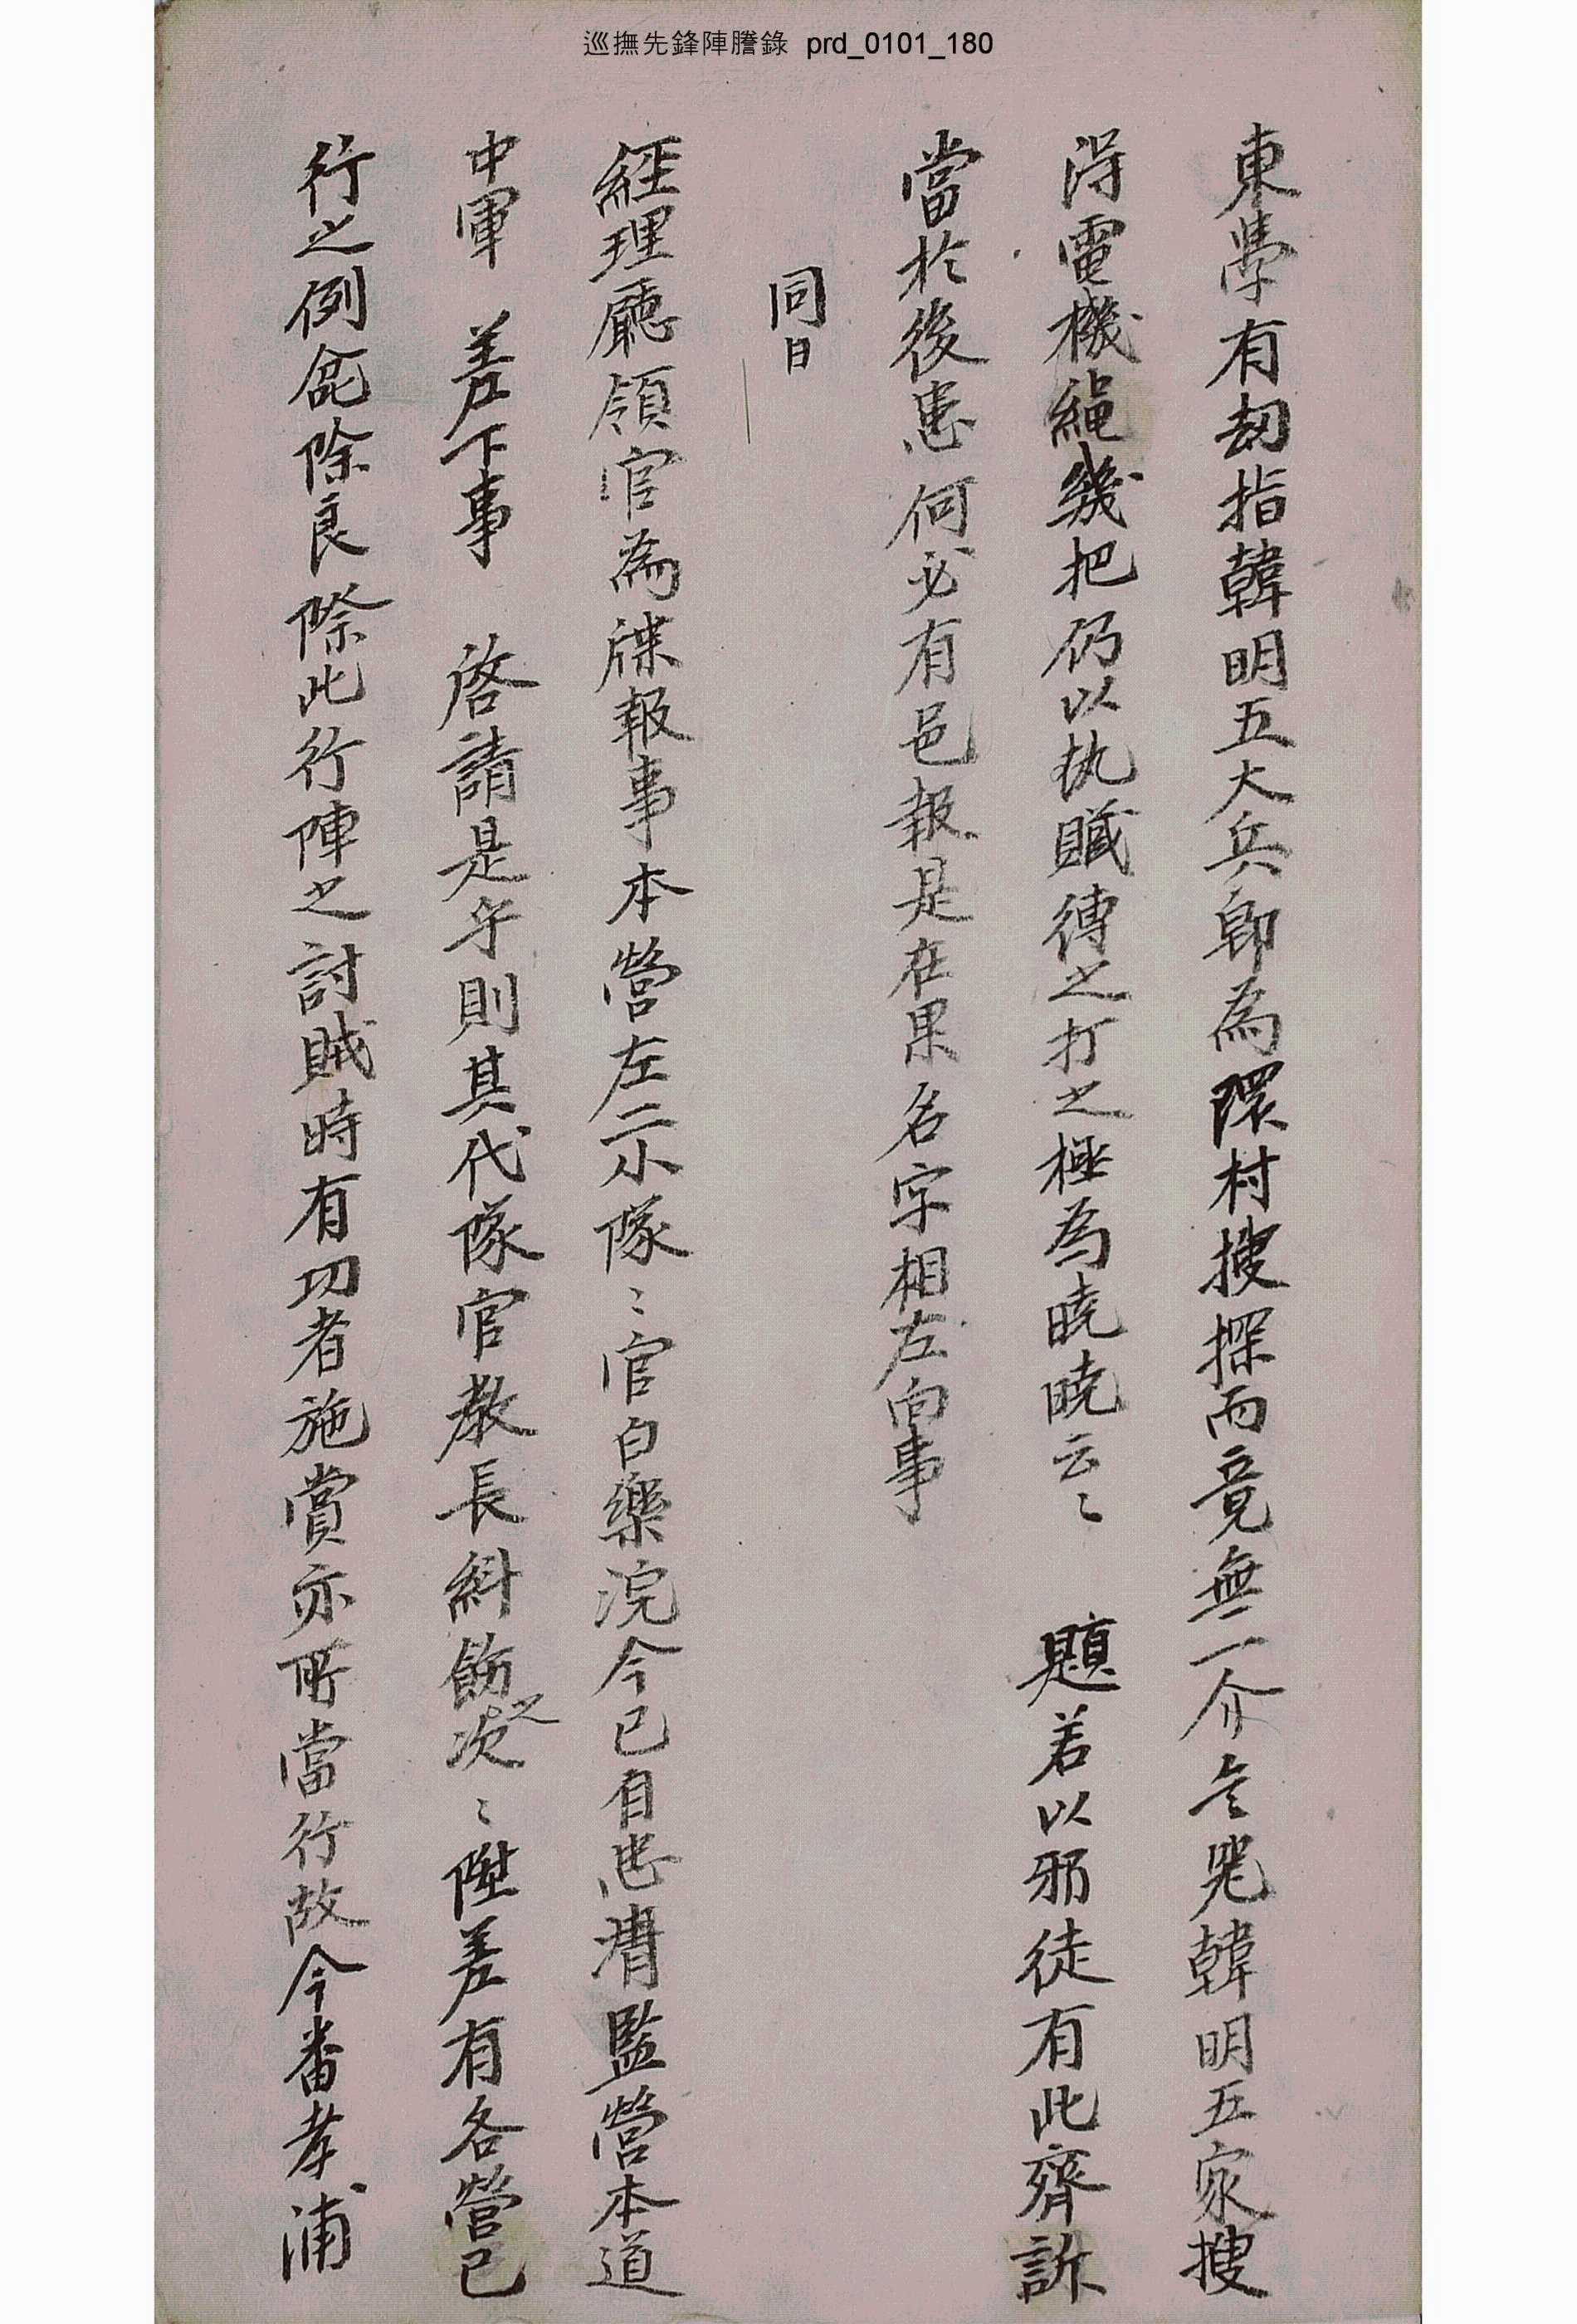 巡撫先鋒陣謄錄 prd_0101_180
東學有刼指韓明五大兵卽為環村搜探而竟無一介言兇韓明五家搜
淂電機繩幾把仍以执贓縛之打之極為曉曉云〻 題若以邪徒有此齊訴
當於後患何必有邑報是在果名字相左向事
同日
經理廳領官為牒報事本營左二小隊〻官白樂浣今已自忠淸監營本道
中軍 差下事 啓請是乎則其代隊官敎長糾飭之次〻陞差有各營已
行之例兺除良除此行陣之討賊時有功者施賞亦所當行故今番孝浦